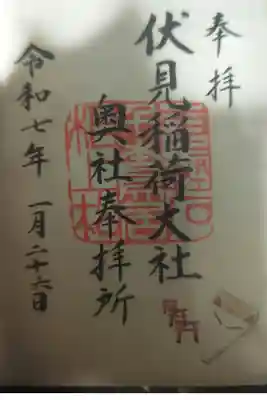 奉拝
伏見稲荷大社
奥社奉拝所
令和七年 一月二十六日